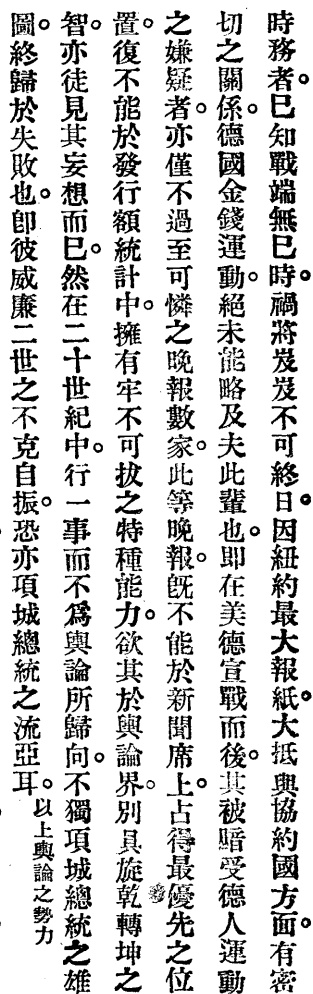 時務者。已知戰端無已時。禍將岌岌不可終日。因紐約最大報紙。大抵與協約國方面。有密
切之關係。德國金錢運動。絕未能略及夫此輩也。即在美德宣戰而後。其被賄受德人運動
之嫌疑者。亦僅不過至可憐之晚報數家。此等晚報。旣不能於新聞席上。占得最優先之位
置。復不能於發行額統計中。擁有牢不可拔之特種能力。欲其於輿論界。別具旋乾轉坤之
智。亦徒見其妄想而已。然在二十世紀中。行一事而不爲輿論所歸向。不獨項城總統之雄
圖。終歸於失敗也。卽彼威廉二世之不克自振。恐亦項城總統之流亞耳。以上輿論之勢力